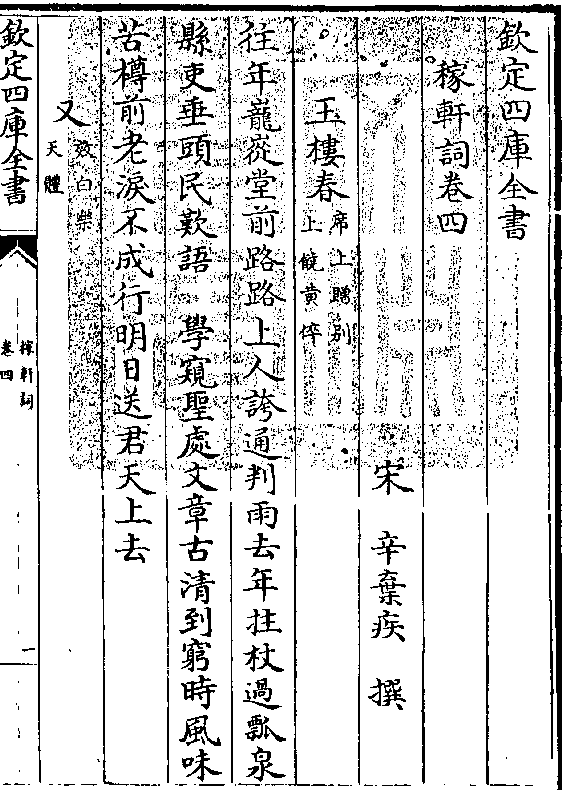 欽定四庫全書
稼軒詞卷四
宋 辛棄疾 撰
玉樓春 席上贈別
上饒黄倅
往年巃嵸堂前路路上人誇通判雨去年拄杖過瓢泉
縣吏垂頭民歎語 學窺聖處文章古清到窮時風味
苦樽前老淚不成行明日送君天上去
又 效白樂
天體
欽定四庫全書
稼軒詞
卷四
一